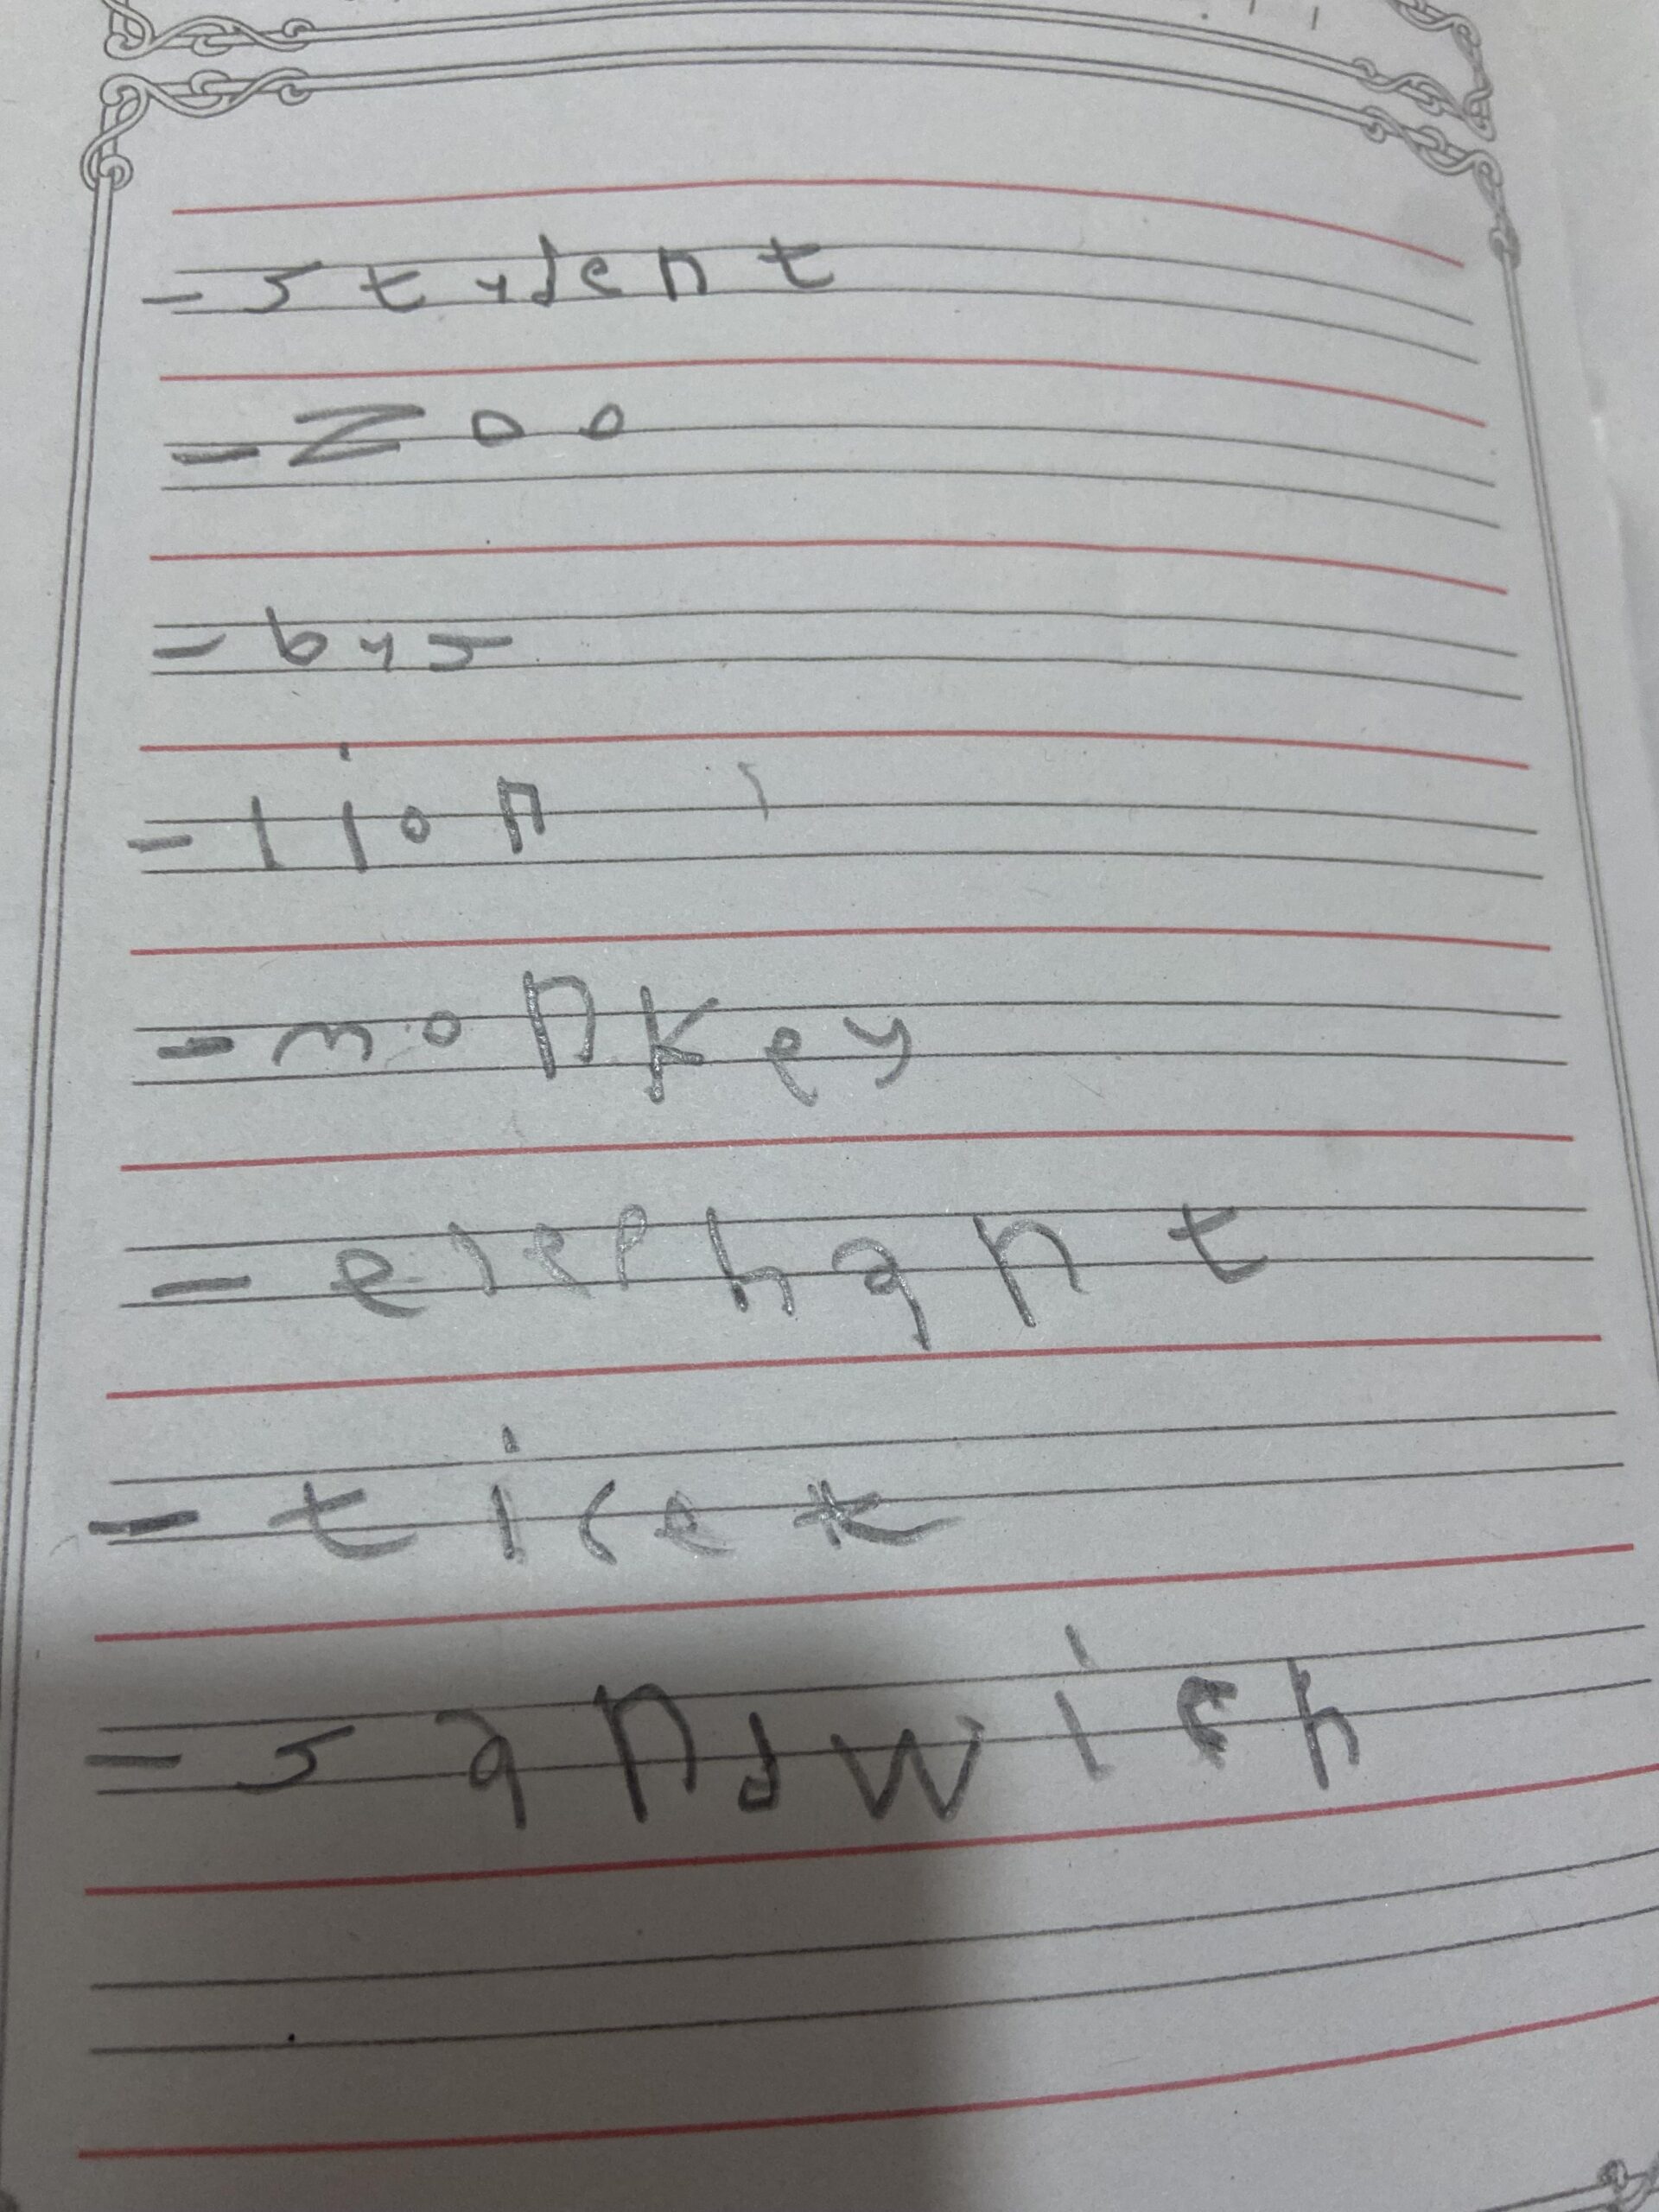 - student
- Zoo
- bus
- lion
- monkey
- elephant
- ticet
- sandwich